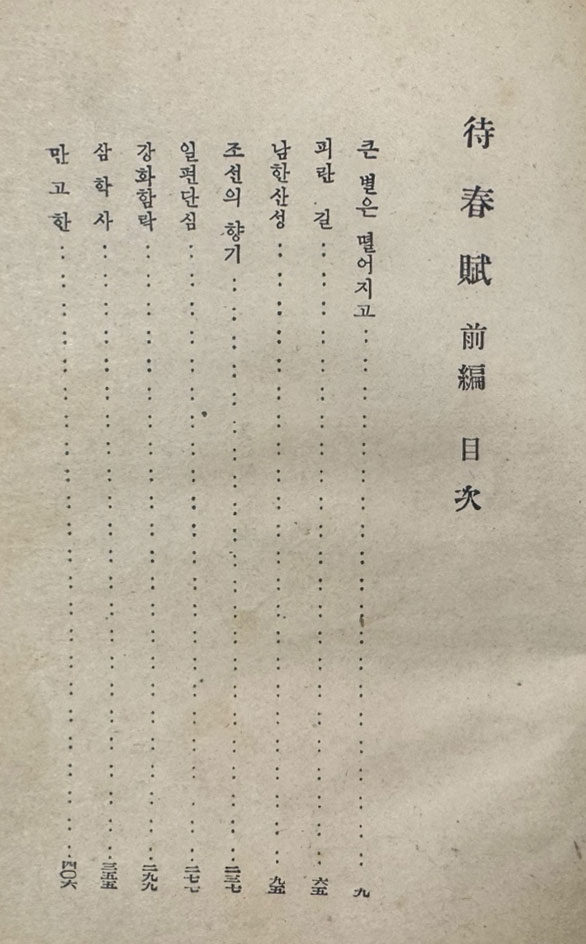 待春賦 前編 目次
큰 별은 떨어지고 九
피란 길 六五
남한산성 九五
조선의 향기 二三七
일편단심 二七七
강화함락 二九九
삼학사 三五五
만고한 四〇六